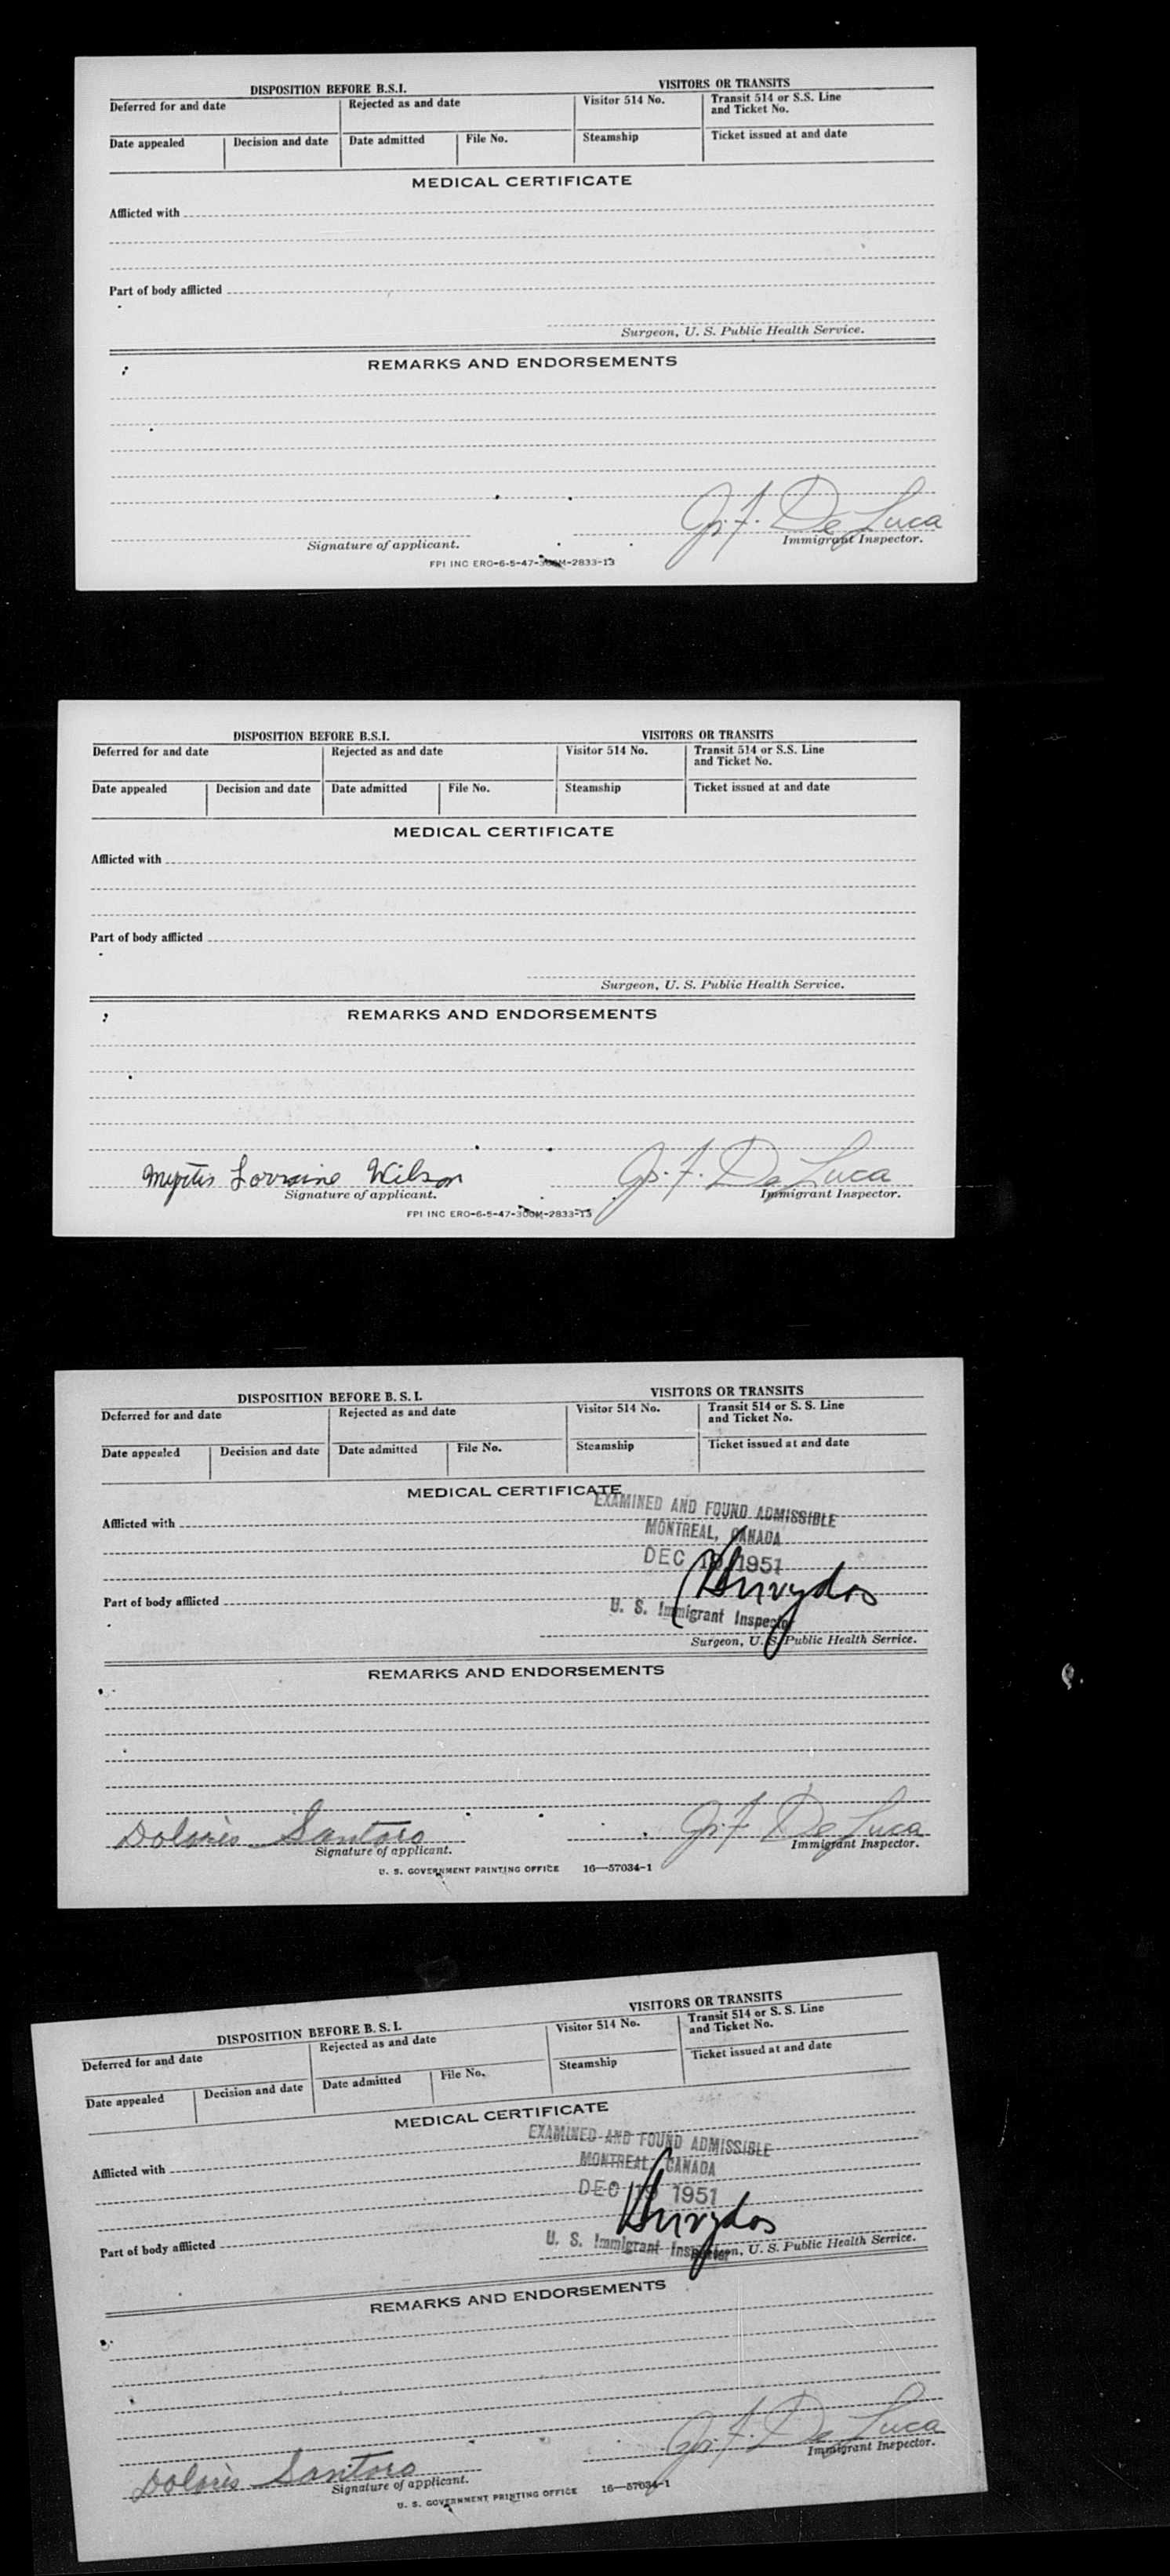 DISPOSITION BEFORE B.S.I. VISITORS OR TRANSITS
Deferred for and date Rejected as and date Visitor 514 No. Transit 514 or S.S. Line
and Ticket No.
Date appealed Decision and date Date admitted File No. Steamship Ticket issued at and date
MEDICAL CERTIFICATE
Afflicted with
Part of body afflicted
Surgeon, U. S. Public Health Service.
REMARKS AND ENDORSEMENTS
De Luca
Signature of applicant. Immigrant Inspector.
FPI INC ERO-6-5-47-300M-2833-13
DISPOSITION BEFORE B.S.I. VISITORS OR TRANSITS
Deferred for and date Rejected as and date Visitor 514 No. Transit 514 or S.S. Line
and Ticket No.
Date appealed Decision and date Date admitted File No. Steamship Ticket issued at and date
MEDICAL CERTIFICATE
Afflicted with
Part of body afflicted
Surgeon, U. S. Public Health Service.
REMARKS AND ENDORSEMENTS
Myrtis Lorraine Wilson De Luca
Signature of applicant. Immigrant Inspector.
FPI INC ERO-6-5-47-300M-2833-13
DISPOSITION BEFORE B. S. I. VISITORS OR TRANSITS
Deferred for and date Rejected as and date Visitor 514 No. Transit 514 or S. S. Line
and Ticket No.
Date appealed Decision and date Date admitted File No. Steamship Ticket issued at and date
MEDICAL CERTIFICATE
EXAMINED AND FOUND ADMISSIBLE
Afflicted with
MONTREAL, CANADA
DEC 1951
Part of body afflicted
U. S. Immigrant Inspector
Surgeon, U. S. Public Health Service.
REMARKS AND ENDORSEMENTS
Dolores Santoro De Luca
Signature of applicant. Immigrant Inspector.
U. S. GOVERNMENT PRINTING OFFICE 16—57034-1
DISPOSITION BEFORE B. S. I. VISITORS OR TRANSITS
Deferred for and date Rejected as and date Visitor 514 No. Transit 514 or S. S. Line
and Ticket No.
Date appealed Decision and date Date admitted File No. Steamship Ticket issued at and date
MEDICAL CERTIFICATE
EXAMINED AND FOUND ADMISSIBLE
Afflicted with
MONTREAL, CANADA
DEC 19 1951
Part of body afflicted
U. S. Immigrant Inspector
Surgeon, U. S. Public Health Service.
REMARKS AND ENDORSEMENTS
Dolores Santoro De Luca
Signature of applicant. Immigrant Inspector.
U. S. GOVERNMENT PRINTING OFFICE 16—57034-1